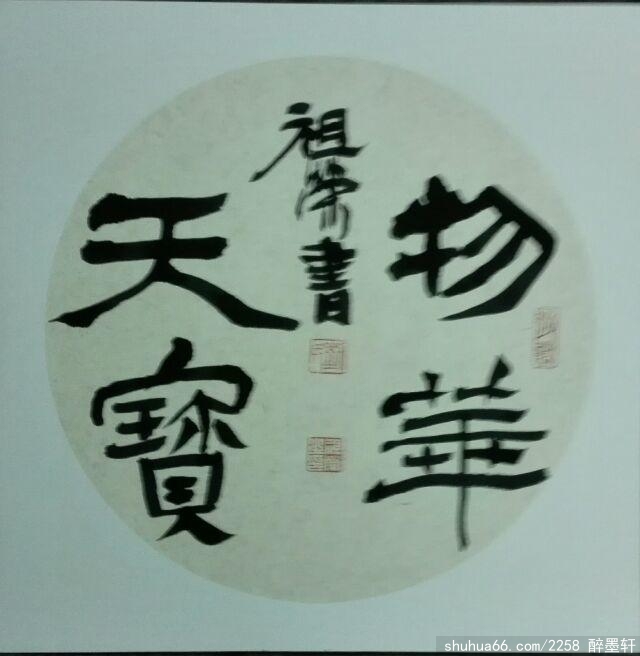 物華
天寶
祖荣书
shuhua66.com/2258 醉墨轩